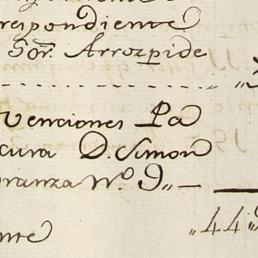 respondiente
Sor. Arrozpide
venciones Pa
cura D. Simon
branza No. 9,,—
,,44
nte